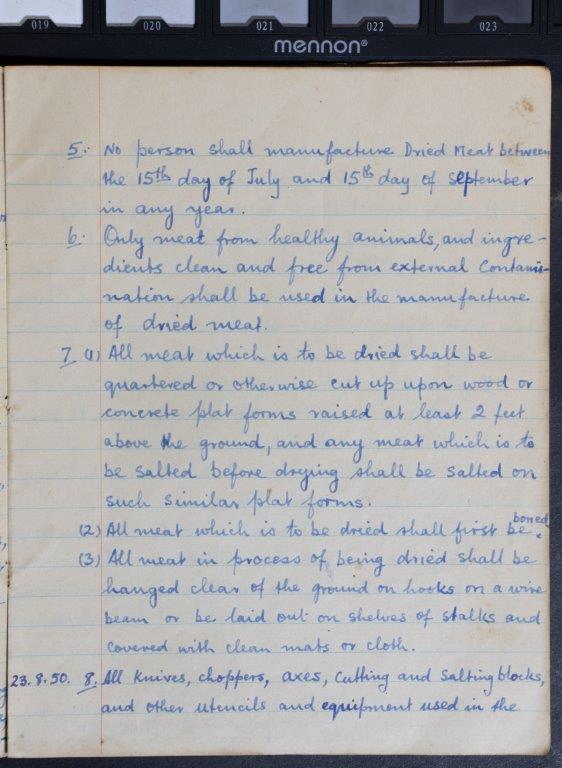 019 020 021 022 023
mennon®
5. No person shall manufacture Dried Meat between
the 15th day of July and 15th day of September
in any year.
6. Only meat from healthy animals, and ingre-
dients clean and free from external Contami-
nation shall be used in the manufacture
of dried meat.
7 (1) All meat which is to be dried shall be
quartered or otherwise cut up upon wood or
concrete plat forms raised at least 2 feet
above the ground, and any meat which is to
be salted before drying shall be salted on
such similar plat forms.
(2) All meat which is to be dried shall first be boned.
(3) All meat in process of being dried shall be
hanged clear of the ground on hooks on a wire
beam or be laid out on shelves of stalks and
covered with clean mats or cloth.
23.8.50. 8. All Knives, choppers, axes, Cutting and Salting blocks,
and other utencils and equipment used in the